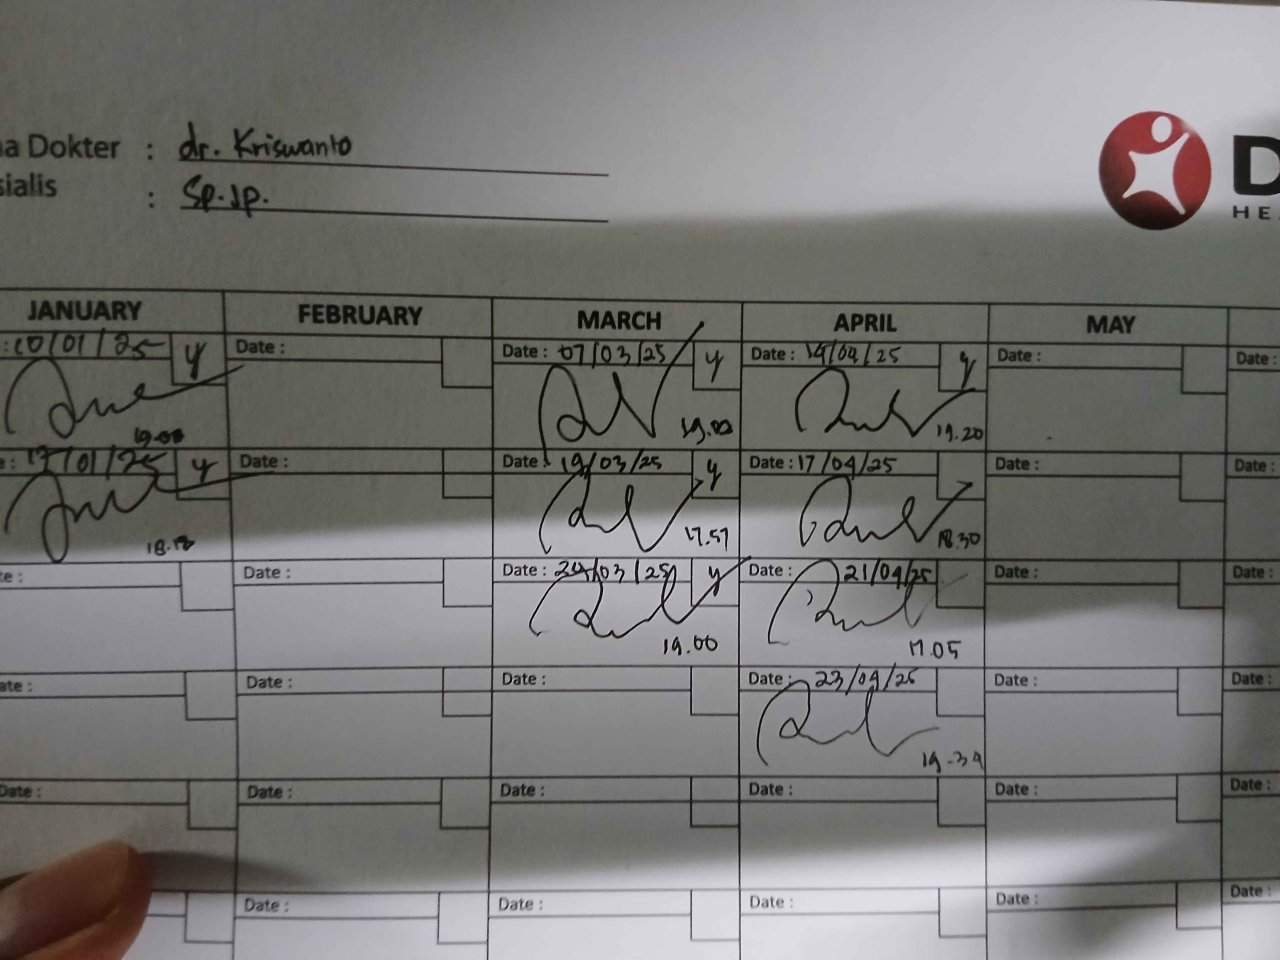 a Dokter : dr. Kriswanto
sialis : Sp.Jp.
D
HE
JANUARY FEBRUARY MARCH APRIL MAY
: 10/01/25 y Date : Date : 07/03/25 y Date : 14/04/25 y Date : Date :
19.00 19.20
: /01/25 y Date : Date : 19/03/25 y Date : 17/04/25 Date : Date :
17.57 18.30
te : Date : Date : 24/03/25 y Date : 21/04/25 Date : Date :
19.00 17.05
ate : Date : Date : Date : 23/04/25 Date : Date :
19.34
Date : Date : Date : Date : Date : Date :
Date : Date : Date : Date : Date :